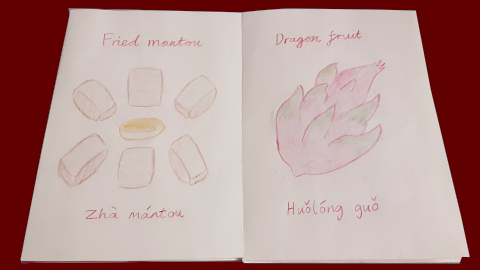 Fried mantou
Zhà mántou
Dragon fruit
Huǒlóng guǒ